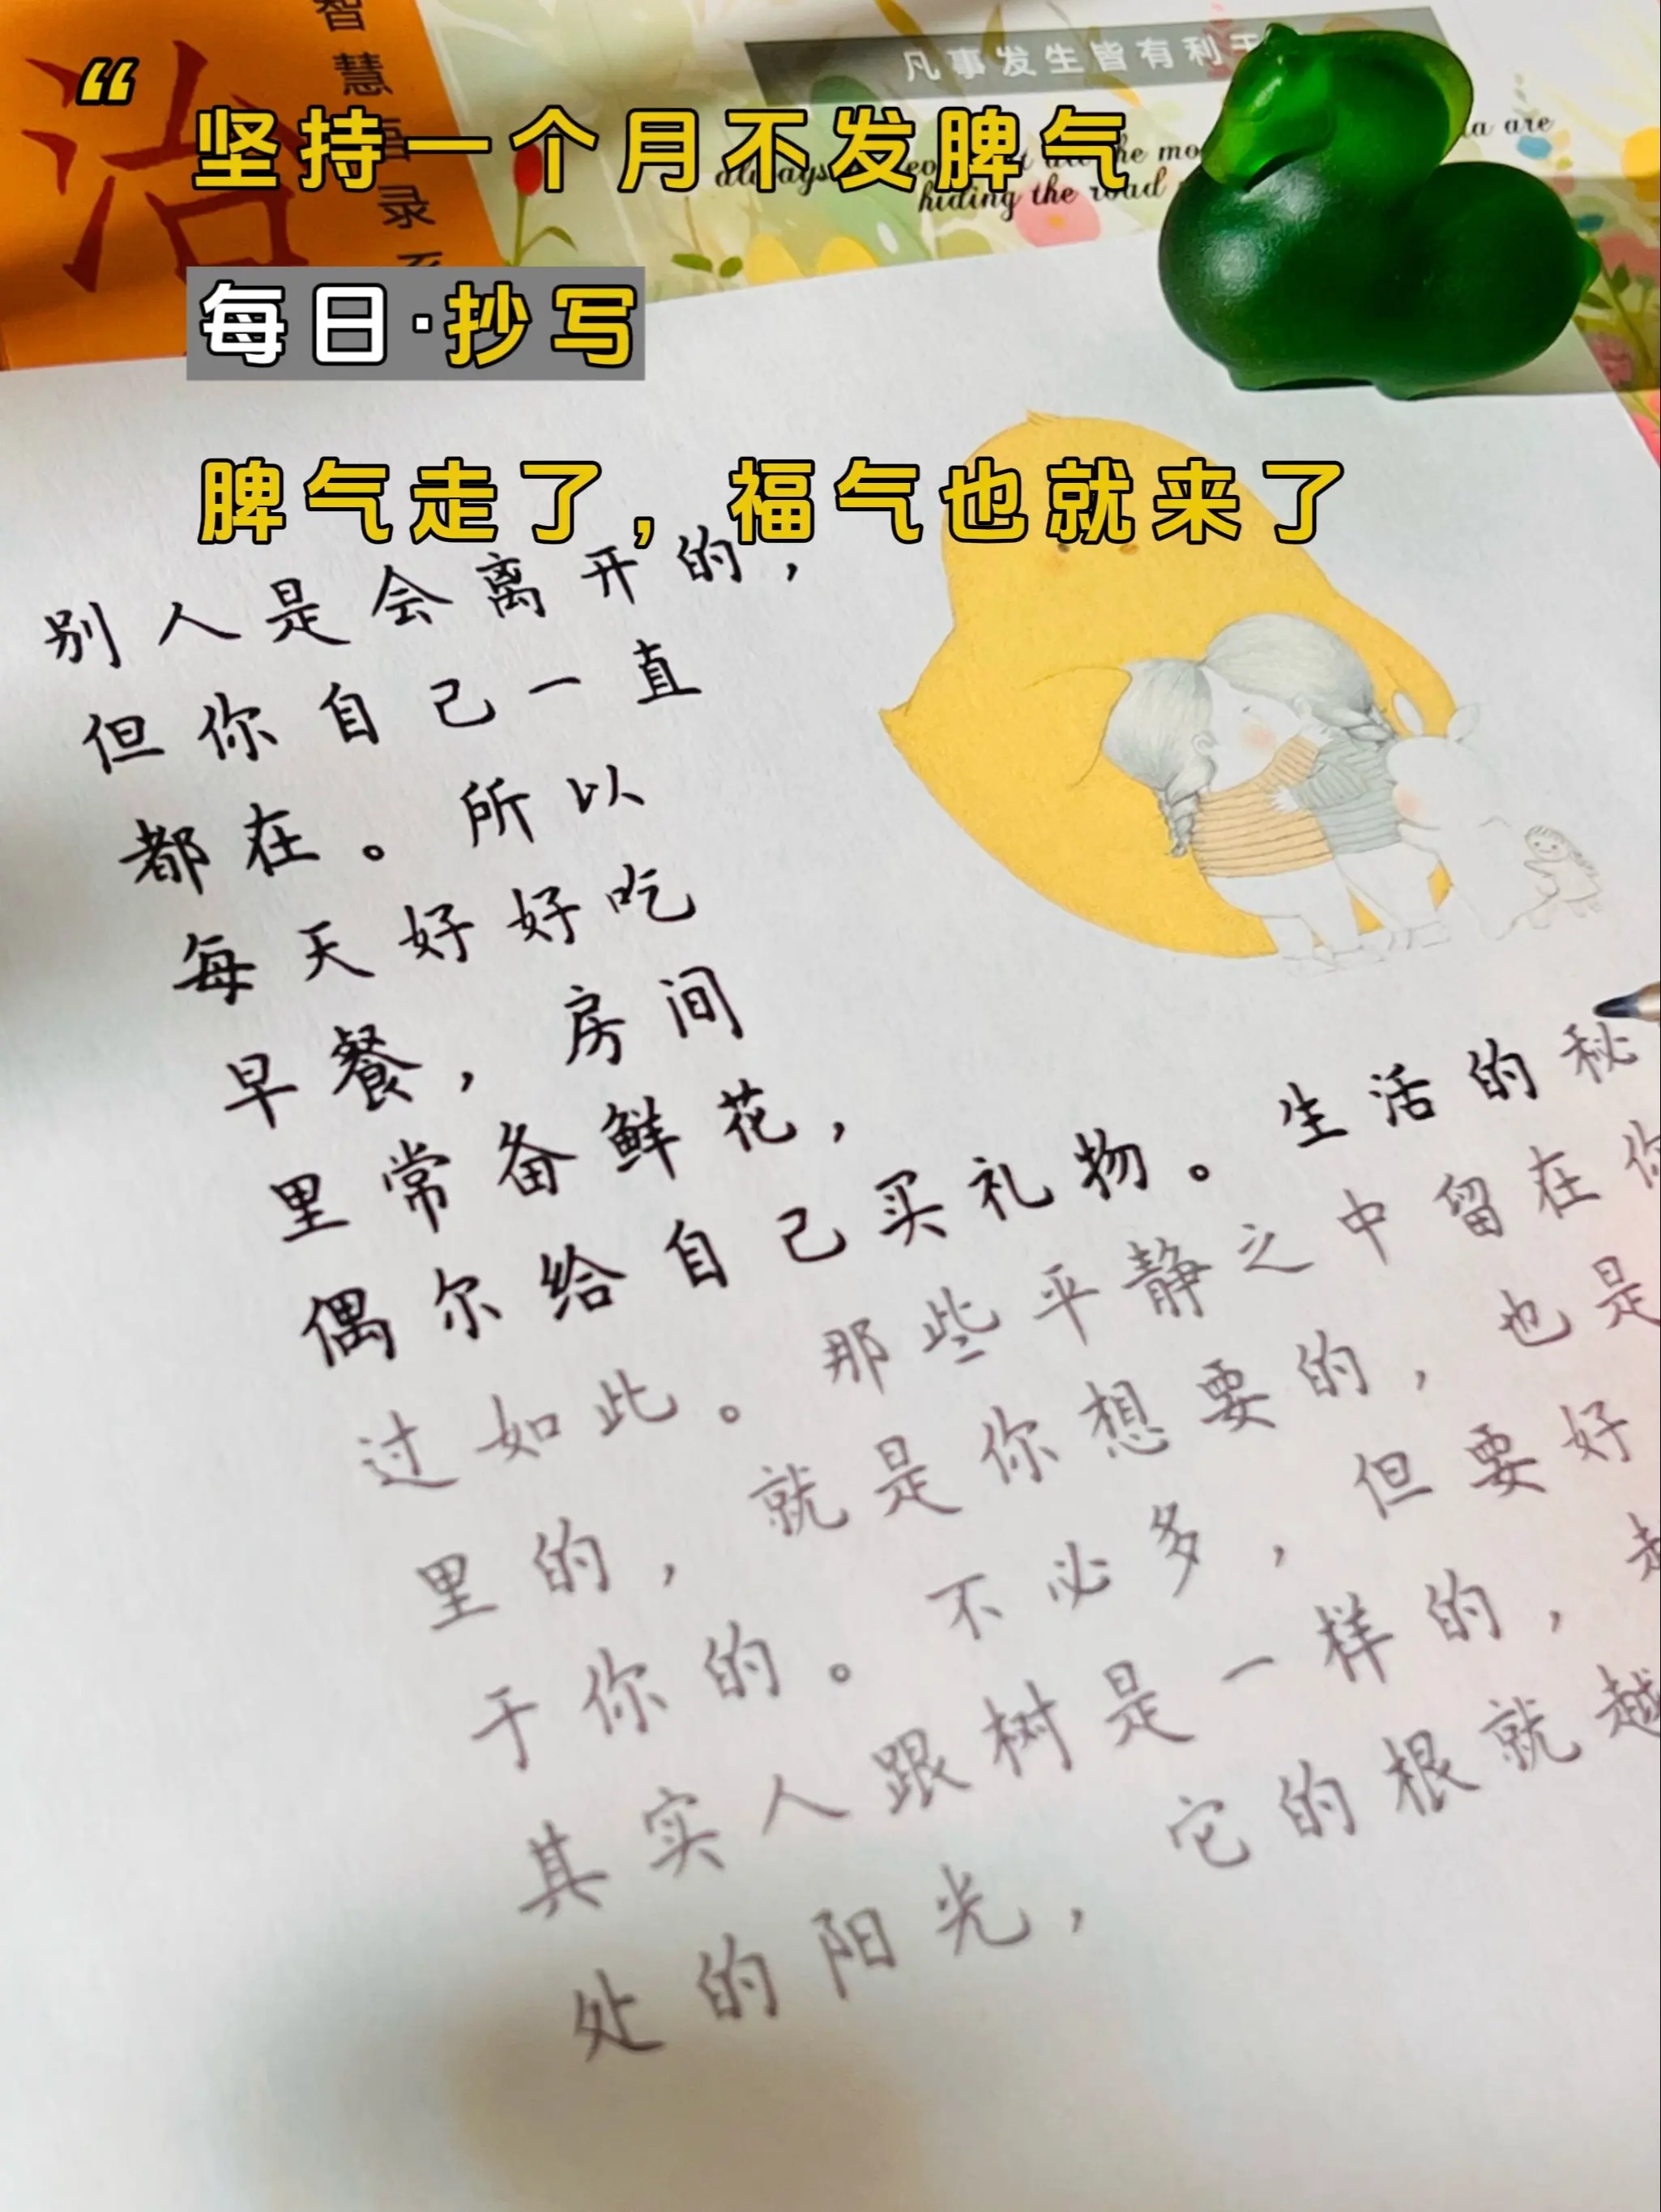 智慧
治
录
凡事发生皆有利于
always
the mo
la are
hiding the road
“
坚持一个月不发脾气
每日·抄写
脾气走了，福气也就来了
别人是会离开的，
但你自己一直
都在。所以
每天好好吃
早餐，房间
里常备鲜花，
偶尔给自己买礼物。生活的秘
过如此。那些平静之中留在你
里的，就是你想要的，也是
于你的。不必多，但要好
其实人跟树是一样的，越
处的阳光，它的根就越